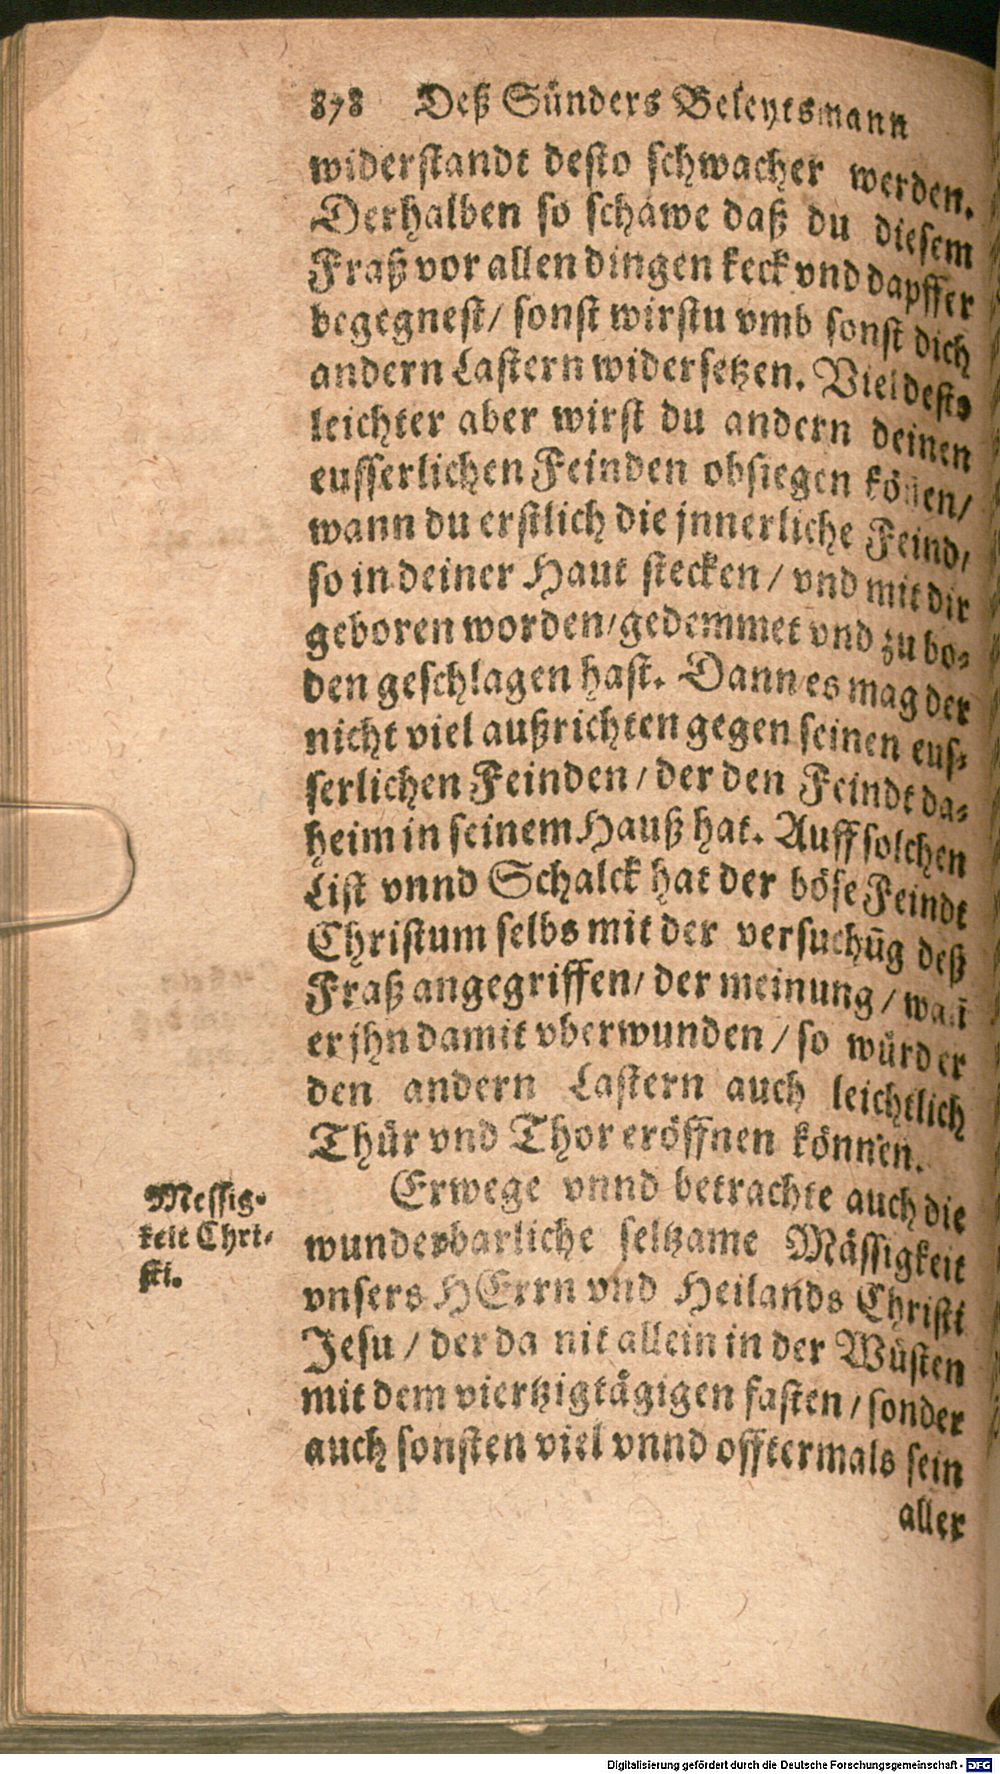 878 Deß Sünders Beleytsmann
widerstandt desto schwacher werden.
Derhalben so schawe daß du diesem
Fraß vor allen dingen keck vnd dapffer
begegnest/ sonst wirstu vmb sonst dich
andern Lastern widersetzen. Viel desto
leichter aber wirst du andern deinen
eusserlichen Feinden obsiegen köñen/
wann du erstlich die jnnerliche Feind/
so in deiner Haut stecken/ vnd mit dir
geboren worden/ gedemmet vnd zu bo-
den geschlagen hast. Dann es mag der
nicht viel außrichten gegen seinen eus-
serlichen Feinden/ der den Feindt da-
heim in seinem Hauß hat. Auff solchen
List vnnd Schalck hat der böse Feindt
Christum selbs mit der versuchũg deß
Fraß angegriffen/ der meinung/ wañ
er jhn damit vberwunden/ so würd er
den andern Lastern auch leichtlich
Thür vnd Thor eröffnen können.
Messig-
keit Chri-
sti.
Erwege vnnd betrachte auch die
wunderbarliche seltzame Mässigkeit
vnsers HErrn vnd Heilands Christi
Jesu/ der da nit allein in der Wüsten
mit dem viertzigtägigen fasten/ sonder
auch sonsten viel vnnd offtermals sein
aller
Digitalisierung gefördert durch die Deutsche Forschungsgemeinschaft - DFG